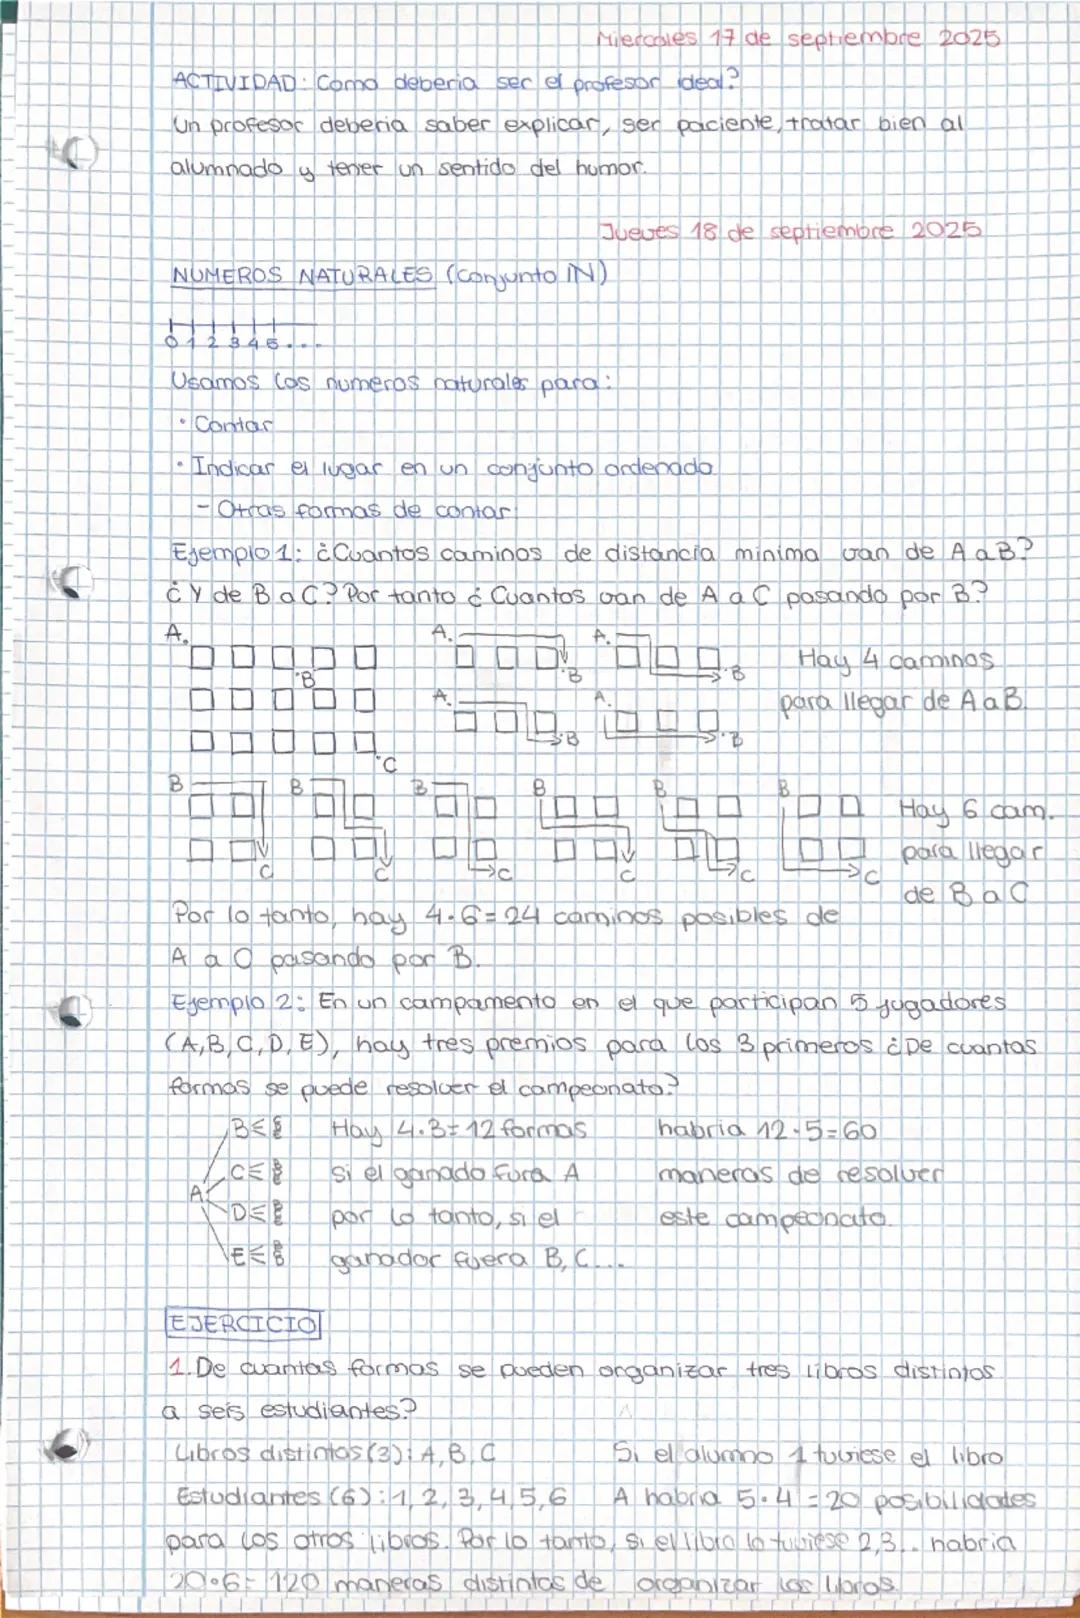 Miercoles 17 de septiembre 2025
ACTIVIDAD: Como deberia ser el profesor ideal?
Un profesor deberia saber explicar, ser paciente, tratar bien al
alumnado y tener un sentido del humor.
Jueves 18 de septiembre 2025
NUMEROS NATURALES (Conjunto ℕ)
0 1 2 3 4 5 ...
Usamos los numeros naturales para:
• Contar
• Indicar el lugar en un conjunto ordenado
- Otras formas de contar:
Ejemplo 1: ¿Cuantos caminos de distancia minima van de A a B?
¿Y de B a C? Por tanto ¿Cuantos van de A a C pasando por B?
A. A. A.
Hay 4 caminos
B B B
para llegar de A a B.
A. A.
B B
C
B B B B B B
Hay 6 cam.
para llegar
C C C C C C
de B a C
Por lo tanto, hay 4·6=24 caminos posibles de
A a C pasando por B.
Ejemplo 2: En un campamento en el que participan 5 jugadores
(A,B,C,D,E), hay tres premios para los 3 primeros ¿De cuantas
formas se puede resolver el campeonato?
B Hay 4·3=12 formas habria 12·5=60
C si el ganado fura A maneras de resolver
A
D por lo tanto, si el este campeonato.
E ganador fuera B, C...
EJERCICIO
1. De cuantas formas se pueden organizar tres libros distintos
a seis estudiantes?
Libros distintos (3): A, B, C Si el alumno 1 tuviese el libro
Estudiantes (6): 1, 2, 3, 4, 5, 6 A habria 5·4=20 posibilidades
para los otros libros. Por lo tanto, si el libro lo tuviese 2,3... habria
20·6=120 maneras distintas de organizar los libros.